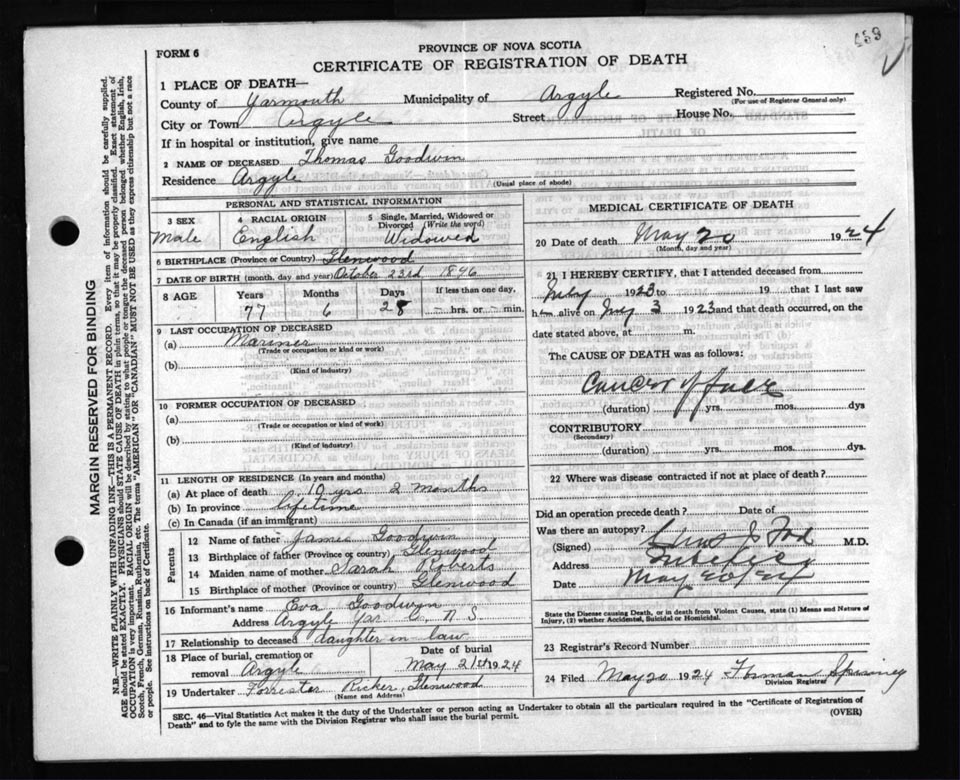 459
FORM 6
PROVINCE OF NOVA SCOTIA
CERTIFICATE OF REGISTRATION OF DEATH
1 PLACE OF DEATH—
County of Yarmouth Municipality of Argyle Registered No.
(For use of Registrar General only)
City or Town Argyle Street House No.
If in hospital or institution, give name
2 NAME OF DECEASED Thomas Goodwin
Residence Argyle
(Usual place of abode)
PERSONAL AND STATISTICAL INFORMATION
3 SEX 4 RACIAL ORIGIN 5 Single, Married, Widowed or Divorced (Write the word)
Male English Widowed
6 BIRTHPLACE (Province or Country) Glenwood
7 DATE OF BIRTH (month, day and year) October 23rd 1896
8 AGE Years Months Days If less than one day,
77 6 28 — hrs. or — min.
9 LAST OCCUPATION OF DECEASED
(a) Mariner
(Trade or occupation or kind or work)
(b)
(Kind of industry)
10 FORMER OCCUPATION OF DECEASED
(a)
(Trade or occupation or kind of work)
(b)
(Kind of industry)
11 LENGTH OF RESIDENCE (In years and months)
(a) At place of death 10 yrs 2 months
(b) In province lifetime
(c) In Canada (if an immigrant)
Parents
12 Name of father James Goodwin
13 Birthplace of father (Province or country) Glenwood
14 Maiden name of mother Sarah Roberts
15 Birthplace of mother (Province or country) Glenwood
16 Informant's name Eva Goodwin
Address Argyle Yar Co. N.S.
17 Relationship to deceased daughter in law
18 Place of burial, cremation or removal Argyle
Date of burial May 21st 1924
19 Undertaker Forrester Ricker, Glenwood
(Name and Address)
MEDICAL CERTIFICATE OF DEATH
20 Date of death May 20 1924
(Month, day and year)
21 I HEREBY CERTIFY, that I attended deceased from
July 1923 to 19 that I last saw
h alive on July 3 1923 and that death occurred, on the
date stated above, at m.
The CAUSE OF DEATH was as follows:
Cancer of face
(duration) yrs. mos. dys
CONTRIBUTORY
(Secondary)
(duration) yrs. mos. dys.
22 Where was disease contracted if not at place of death?
Did an operation precede death? Date of
Was there an autopsy?
(Signed) M.D.
Address
Date May 20
State the Disease causing Death, or in death from Violent Causes, state (1) Means and Nature of Injury, (2) whether Accidental, Suicidal or Homicidal.
23 Registrar's Record Number
24 Filed May 20 1924 Spinney
Division Registrar
SEC. 46—Vital Statistics Act makes it the duty of the Undertaker or person acting as Undertaker to obtain all the particulars required in the "Certificate of Registration of
Death" and to fyle the same with the Division Registrar who shall issue the burial permit.
(OVER)
MARGIN RESERVED FOR BINDING
N.B.—WRITE PLAINLY WITH UNFADING INK—THIS IS A PERMANENT RECORD. Every item of information should be carefully supplied.
AGE should be stated EXACTLY. PHYSICIANS should STATE CAUSE OF DEATH in plain terms, so that it may be properly classified. Exact statement of
OCCUPATION is very important. RACIAL ORIGIN will be described by stating to what people or tongue the deceased person belonged whether English, Irish,
Scotch, French, German, Russian, Ruthenian, etc. The terms "AMERICAN" OR "CANADIAN" MUST NOT BE USED as they express citizenship but not a race
or people. See instructions on back of Certificate.